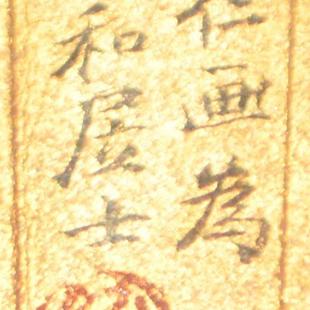 仁画為
和居士